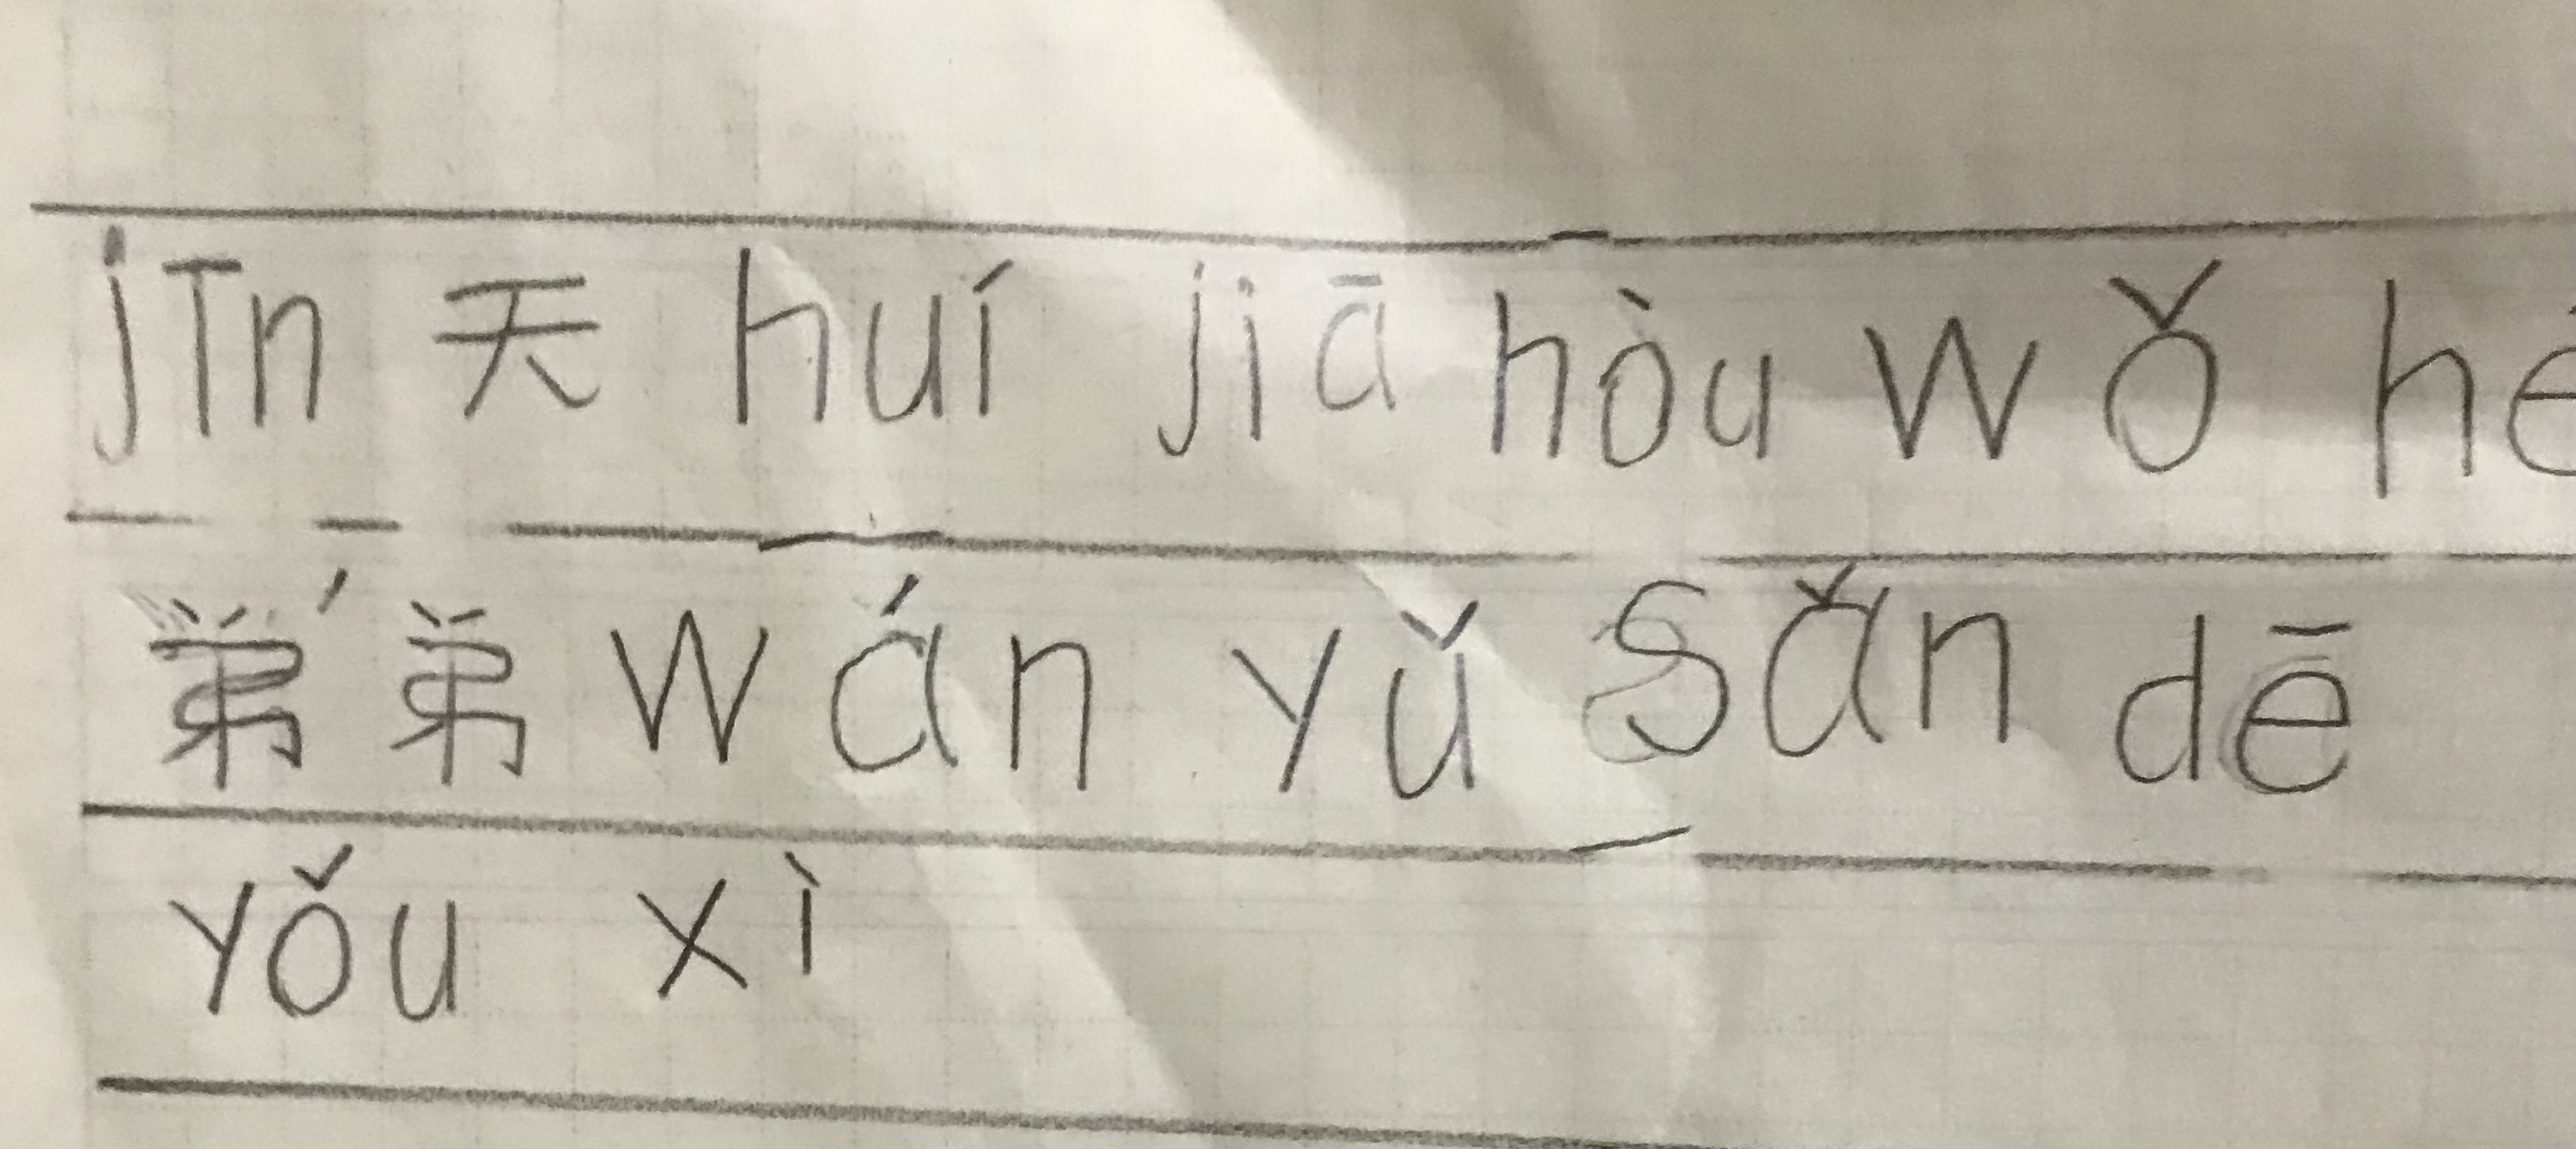 jīn 天 huí jiā hòu wǒ
弟弟 wán yǔ sǎn dē
yǒu xì